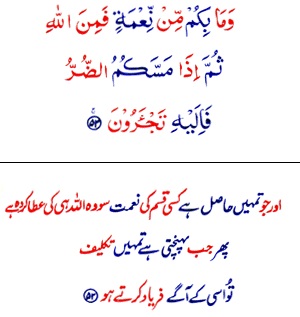 وَمَا بِكُمْ مِّنْ نِّعْمَةٍ فَمِنَ اللّٰهِ
ثُمَّ اِذَا مَسَّكُمُ الضُّرُّ
فَاِلَيْهِ تَجْـَٔرُوْنَ ۚ ﴿۵۳﴾
اور جو تمہیں حاصل ہے کسی قسم کی نعمت سو وہ اللہ ہی کی عطا کردہ ہے
پھر جب پہنچتی ہے تمہیں تکلیف
تو اُسی کے آگے فریاد کرتے ہو ﴿۵۳﴾